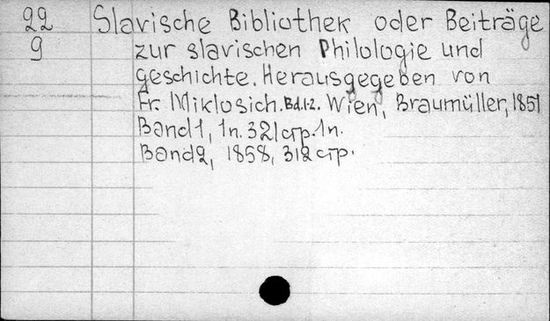 22 Slavische Bibliothek oder Beiträge
9 zur slavischen Philologie und
geschichte. Herausgegeben von
Fr. Miklosich. Bd.1-2. Wien, Braumüller, 1851
Band1, 1п. 321 стр. 1п.
Band2, 1858, 312 стр.